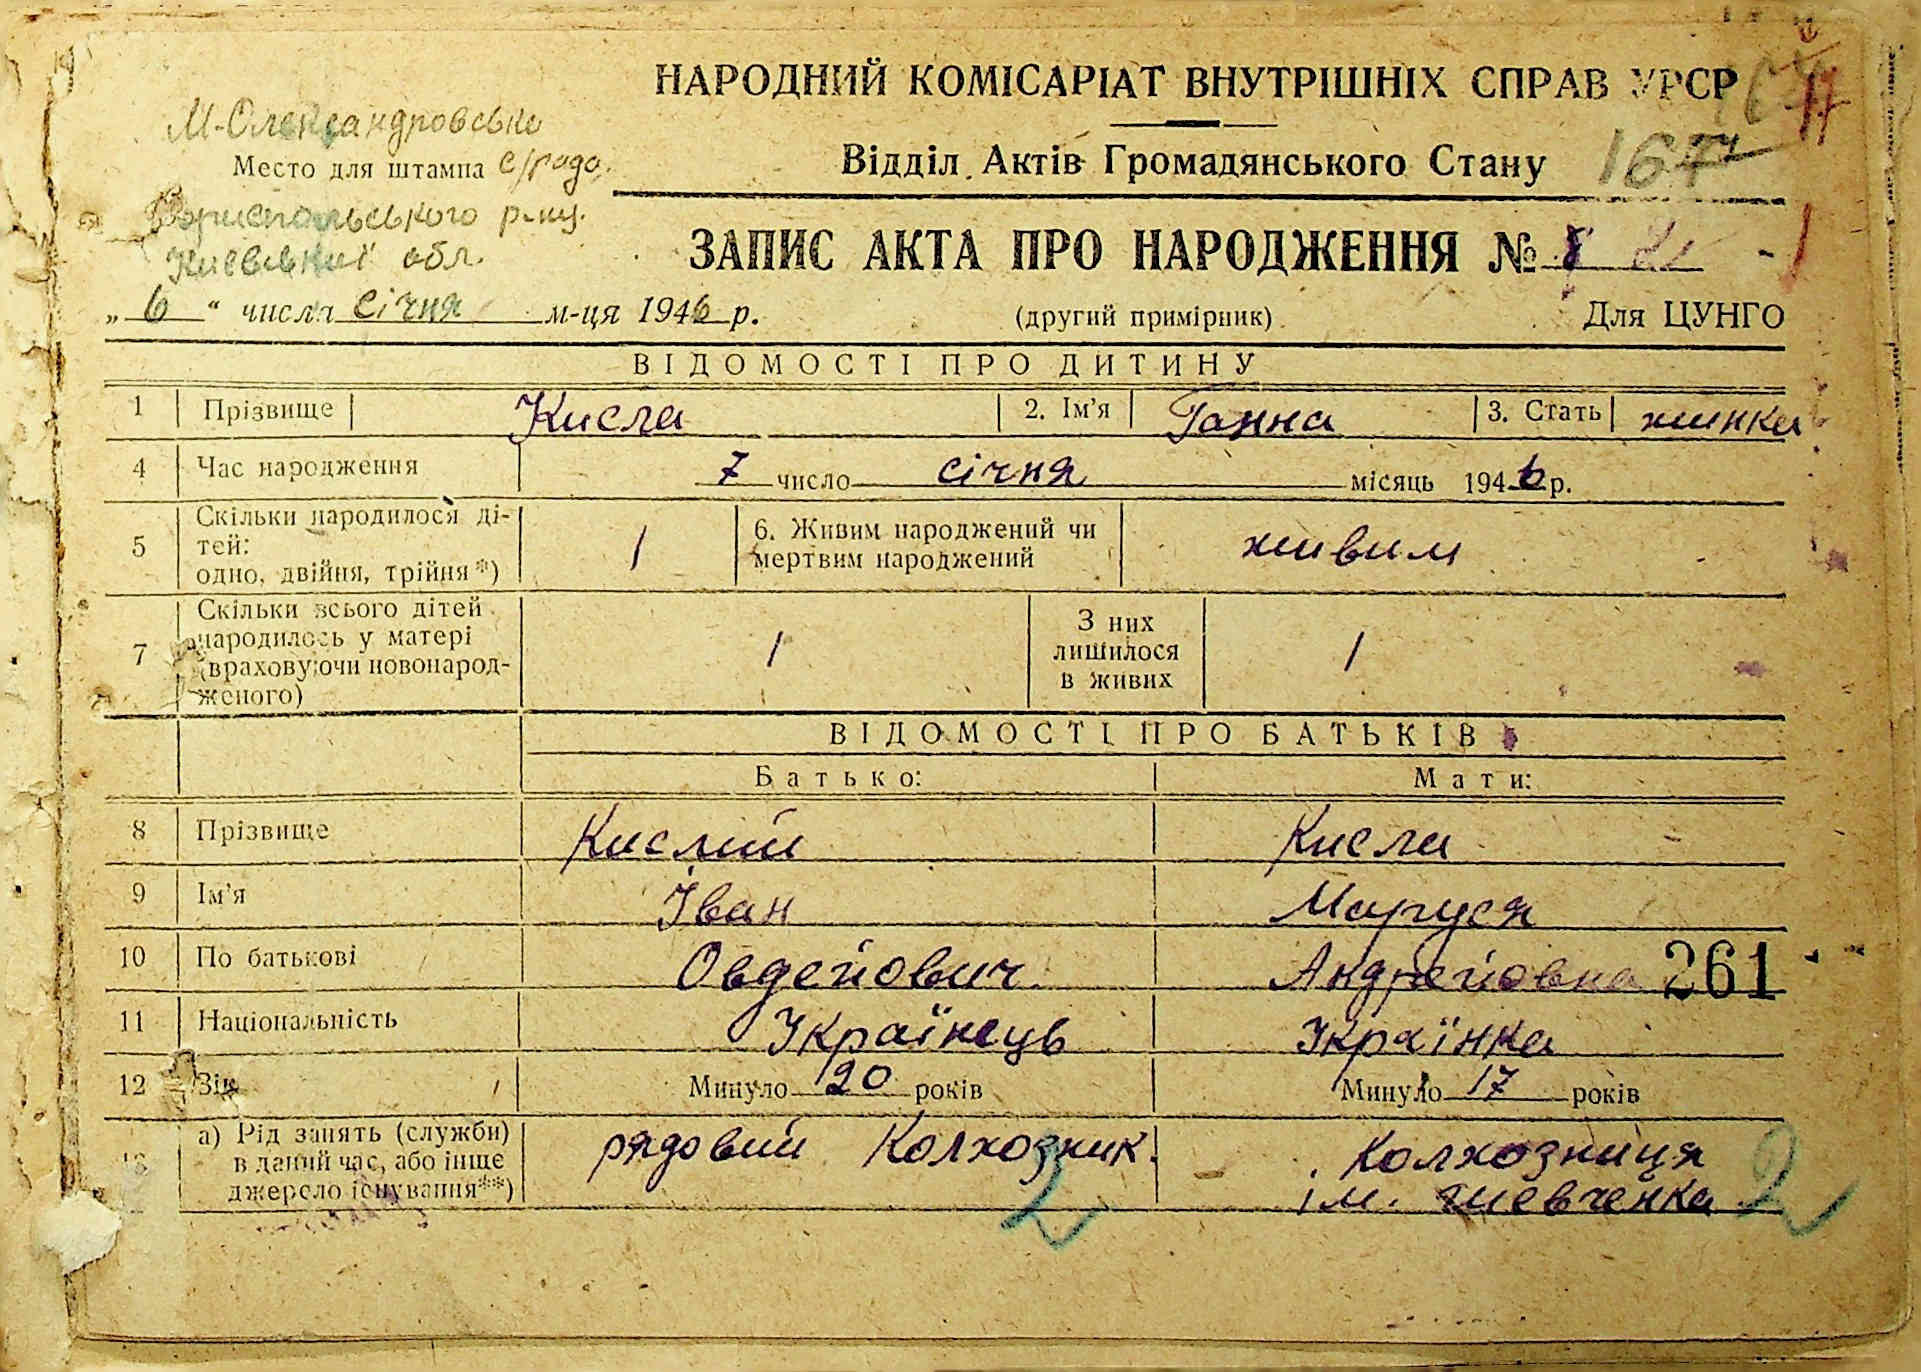 НАРОДНИЙ КОМІСАРІАТ ВНУТРІШНІХ СПРАВ УРСР
М-Олександровська
Відділ Актів Громадянського Стану
167
Место для штампа с/рада
Бориспольського р-ну.
Київської обл.
ЗАПИС АКТА ПРО НАРОДЖЕННЯ №
„ 6 “ числа січня м-ця 1946 р.
(другий примірник)
Для ЦУНГО
ВІДОМОСТІ ПРО ДИТИНУ
1 Прізвище Кисла 2. Ім'я Ганна 3. Стать жинка
4 Час народження 7 число січня місяць 1946 р.
5 Скільки народилося ді-
тей:
одно, двійня, трійня*) 1
6. Живим народжений чи
мертвим народжений живим
7 Скільки всього дітей
народилось у матері
(враховуючи новонарод-
женого) 1
З них
лишилося
в живих 1
ВІДОМОСТІ ПРО БАТЬКІВ
Батько: Мати:
8 Прізвище Кислий Кисла
9 Ім'я Іван Маруся
10 По батькові Овдейович Андрейовна 261
11 Національність Українець Українка
12 Вік Минуло 20 років Минуло 17 років
13 а) Рід занять (служби)
в даний час, або інше
джерело існування**)
рядовий Колхозник.
Колхозниця
ім. Шевченка
2 2